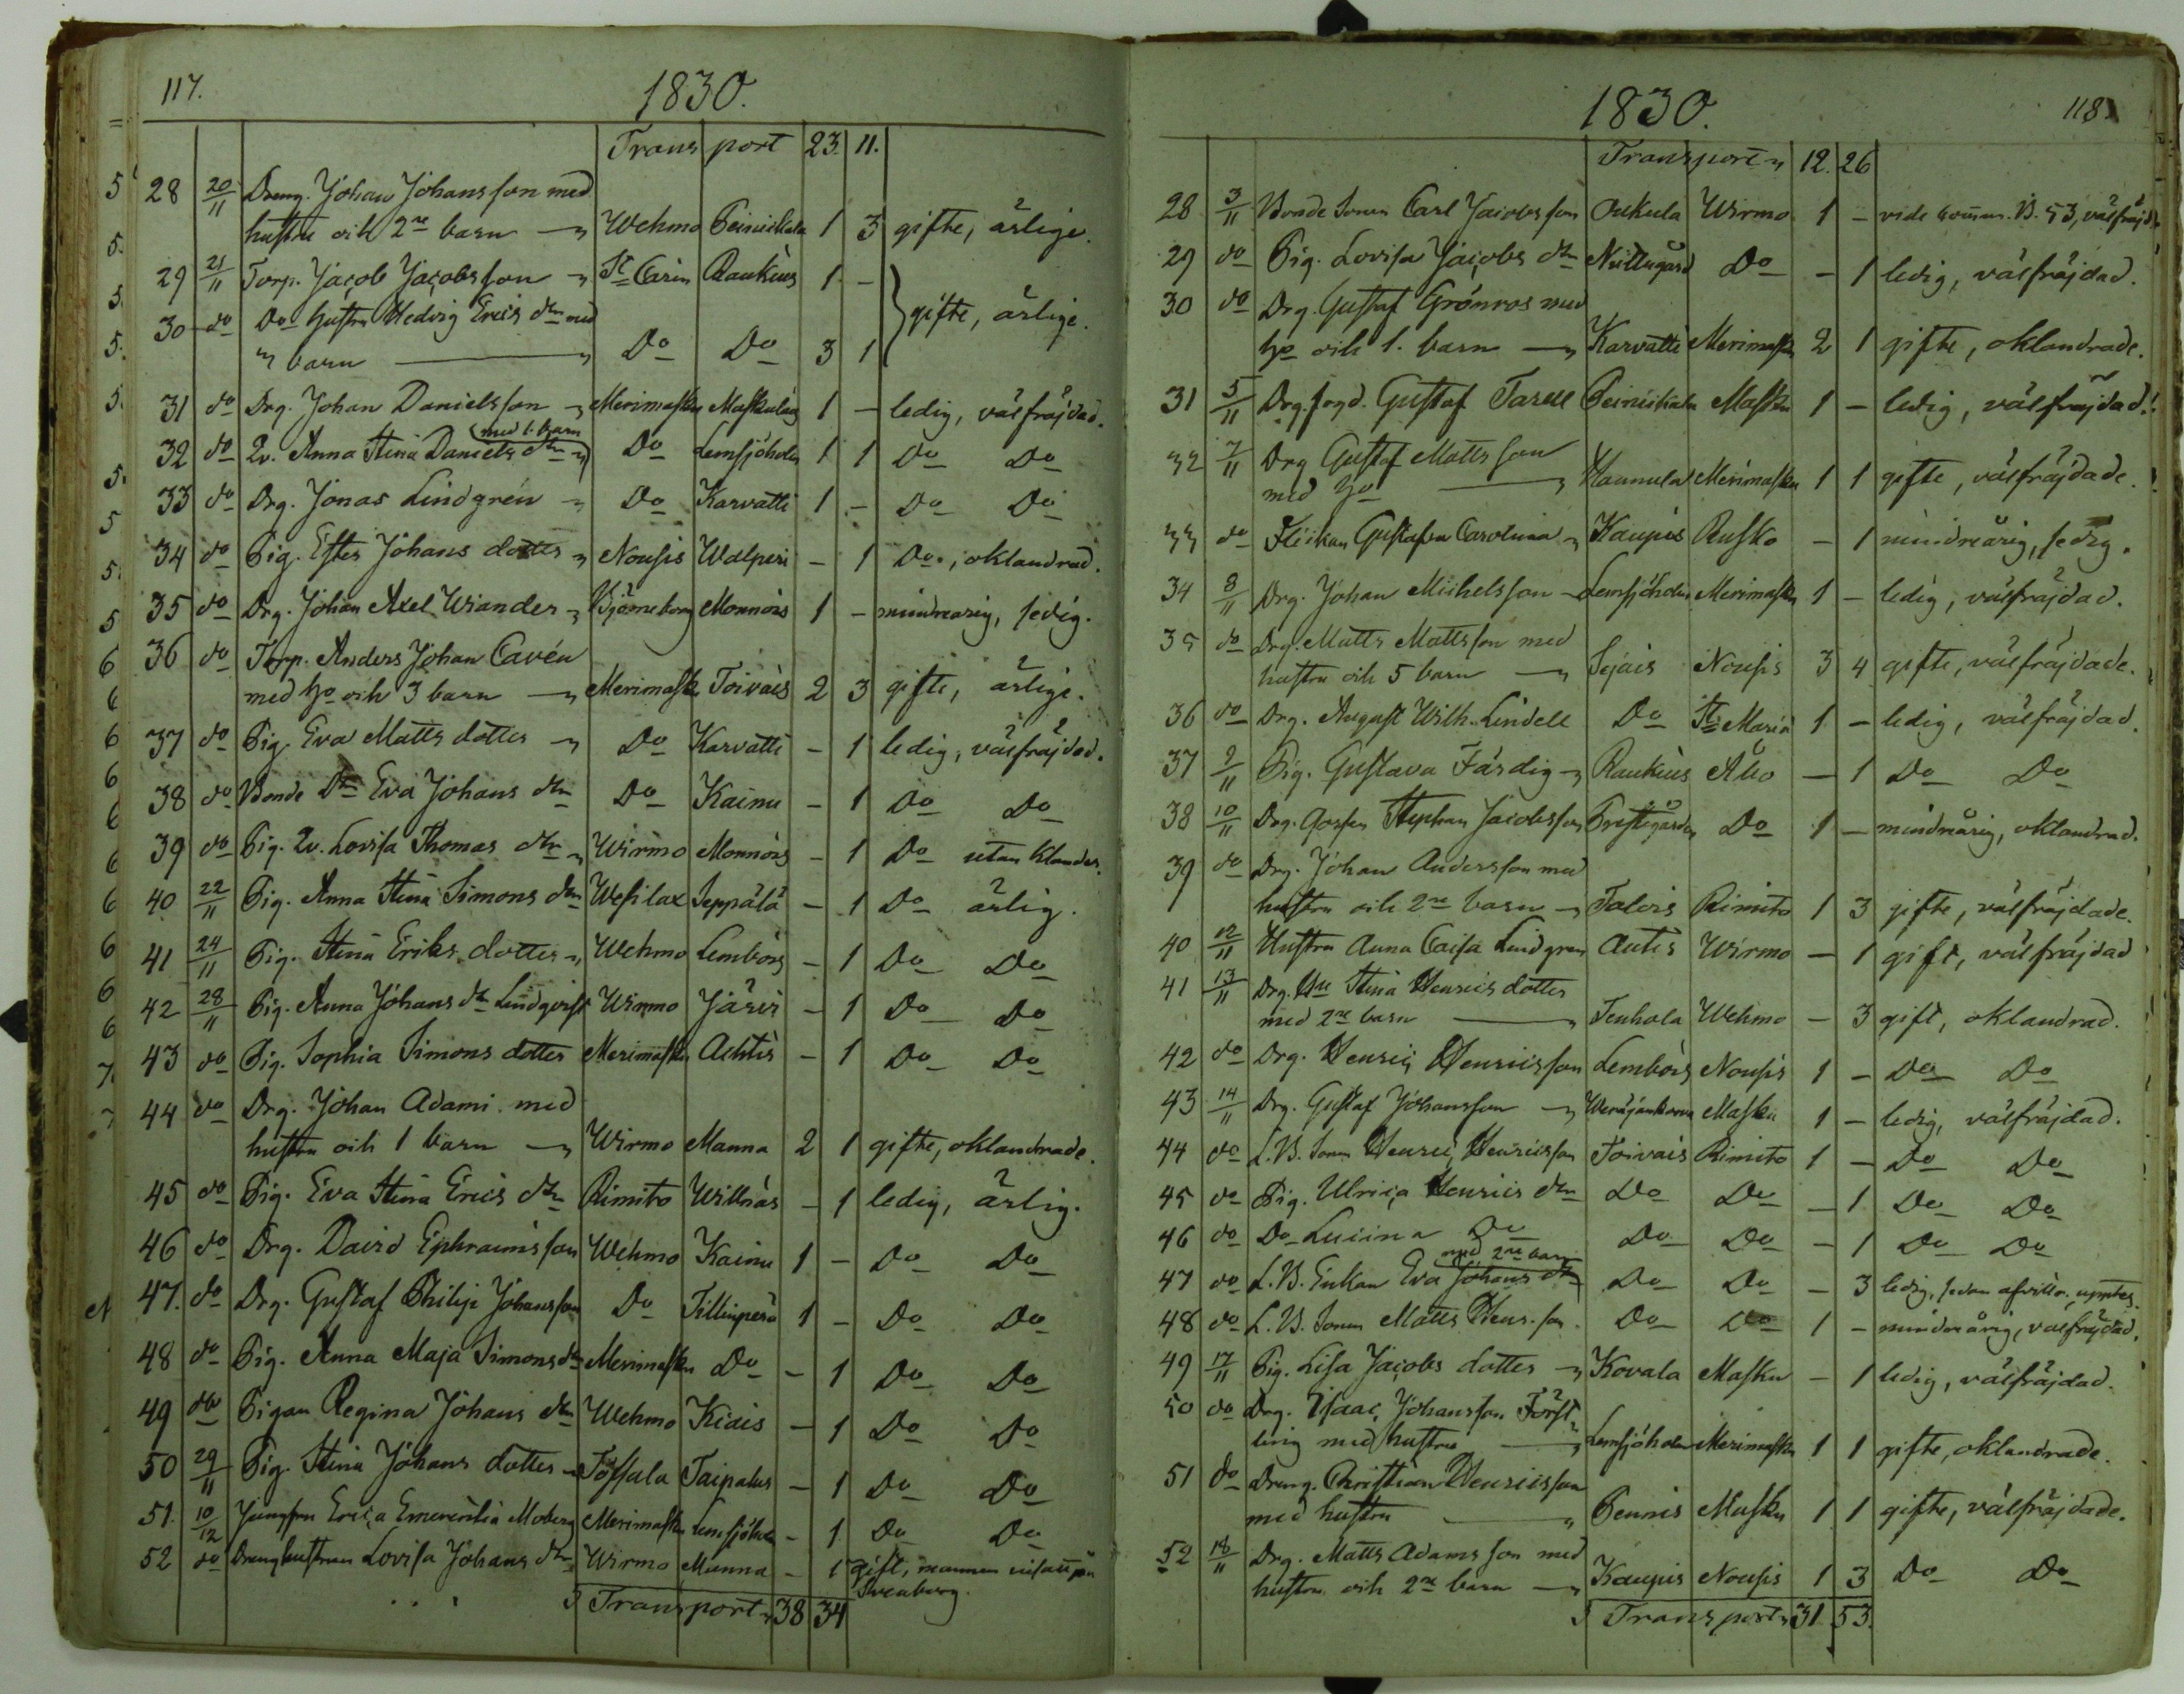 117.
1830.
Transport 23. 11.
28 20/11 Dreng. Johan Johansson med
hustru och 2ne barn Wehmo Peiniskala 1 3 gifte, ärlige.
29 21/11 Torp. Jacob Jacobsson St Carin Raukius 1 -
30 do Do hustru Hedvig Erics dtr med
" barn Do Do 3 1 gifte, ärlige.
31 do Drg. Johan Danielsson Merimasku Maskulax 1 - ledig, välfräjdad.
med 1. barn
32 do Qv. Anna Stina Daniels dtr Do Lemsjöholm 1 1 Do Do
33 do Drg. Jonas Lindgrén Do Karvatti 1 - Do Do
34 do Pig. Ester Johans dotter Nousis Walperi - 1 Do, oklandrad.
35 do Drg. Johan Axel Wiander Björneborg Monnois 1 - mindreårig, sedig.
36 do Torp. Anders Johan Cavén
med Ho och 3 barn Merimask Toivais 2 3 gifte, ärlige.
37 do Pig. Eva Matts dotter Do Karvatti - 1 ledig, välfräjdad.
38 do Bonde Dtr Eva Johans dtr Do Kainu - 1 Do Do
39 do Pig. Qv. Lovisa Thomas dtr Wirmo Monnois - 1 Do utan klander.
40 22/11 Pig. Anna Stina Simons dtr Wesilax Seppälä - 1 Do ärlig.
41 24/11 Pig. Stina Eriks dotter Wehmo Lembois - 1 Do Do
42 28/11 Pig. Anna Johans dtr Lindqvist Wirmo Järvi - 1 Do Do
43 do Pig. Sophia Simons dotter Merimasku Achtis - 1 Do Do
44 do Drg. Johan Adami med
hustru och 1 barn Wirmo Manna 2 1 gifte, oklandrade.
45 do Pig. Eva Stina Erics dtr Rimito Willnäs - 1 ledig, ärlig.
46 do Drg. David Ephraimsson Wehmo Kainu 1 - Do Do
47. do Drg. Gustaf Philip Johansson Do Tillinperä 1 - Do Do
48 do Pig. Anna Maja Simons dr Merimasku Do - 1 Do Do
49 do Pigan Regina Johans dtr Wehmo Kiais - 1 Do Do
50 29/11 Pig. Stina Johans dotter Töfsala Taipalus - 1 Do Do
51. 10/12 Jungfru Erica Emerentia Moberg Merimasku Lemsjöholm - 1 Do Do
52 do Drenghustrun Lovisa Johans dtr Wirmo Manna - 1 gift, mannen
Sveaborg.
Transport 38 34
1830.
118
Transport 12. 26
28 3/11 Bonde Sonen Carl Jacobsson Oukula Wirmo 1 - vide Comm. B. 53, välfräjd.
29 do Pig. Lovisa Jacobs dtr Do - 1 ledig, välfräjdad.
30 do Drg. Gustaf Grönroos med
Ho och 1. barn Karvatti Merimasku 2 1 gifte, oklandrade.
31 5/11 Drg. Gustaf Tarell Peiniskala Masku 1 - ledig, välfräjdad.
32 7/11 Drg Gustaf Mattsson
med Ho Hannula Merimasku 1 1 gifte, välfräjdade.
33 do Flickan Gustafva Carolina Kaupis Rusko - 1 mindreårig, sedig.
34 8/11 Drg. Johan Michelsson Lemsjöholm Merimasku 1 - ledig, välfräjdad.
35 do Drg. Matts Mattsson med
hustru och 5 barn Sejais Nousis 3 4 gifte, välfräjdade.
36 do Drg. August Wilh. Lindell Do St Maria 1 - ledig, välfräjdad.
37 9/11 Pig. Gustava Färdig Raukius Åbo - 1 Do Do
38 10/11 Drg. Gossen Stephan Jacobsson Prestegården Do 1 - mindreårig, oklandrad.
39 do Drg. Johan Andersson med
hustru och 2ne barn Talois Rimito 1 3 gifte, välfräjdade.
40 12/11 Hustru Anna Caisa Lindgren Autis Wirmo - 1 gift, välfräjdad
41 13/11 Drg. Hu Stina Henrics dotter
med 2ne barn Tenhola Wehmo - 3 gift, oklandrad.
42 do Drg. Henric Henricsson Lembois Nousis 1 - Do Do
43 14/11 Drg. Gustaf Johansson Masku 1 - ledig, välfräjdad.
44 do L. B. Sonen Henric Henricsson Toivais Rimito 1 - Do Do
45 do Pig. Ulrica Henrics dtr Do Do - 1 Do Do
46 do Do Luciina Do Do Do - 1 Do Do
med 2ne barn
47 do L. B. Enkan Eva Johans dtr Do Do - 3 ledig, sedan
48 do L. B. Sonen Matts Henr. son Do Do 1 - mindreårig, välfräjdad.
49 17/11 Pig. Lisa Jacobs dotter Kovala Masku - 1 ledig, välfräjdad.
50 do Drg. Isaac Johansson Först
ling med hustru Lemsjöholm Merimasku 1 1 gifte, oklandrade.
51 do Dreng. Christian Henricsson
med hustru Pennis Masku 1 1 gifte, välfräjdade.
52 18/11 Drg. Matts Adamsson med
hustru och 2ne barn Kaupis Nousis 1 3 Do Do
Transport 31. 53.